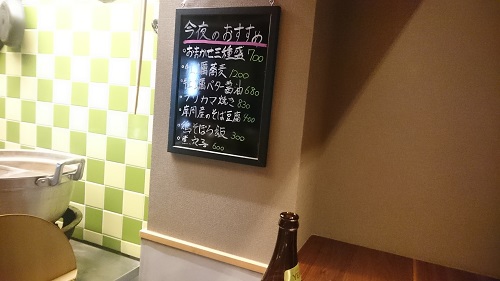 今夜のおすすめ
・おまかせ三種盛 700
蕎麦 1200
バター醤油 680
ブリカマ焼き 830
産のそば豆腐 400
そぼろ飯 300
煮 600